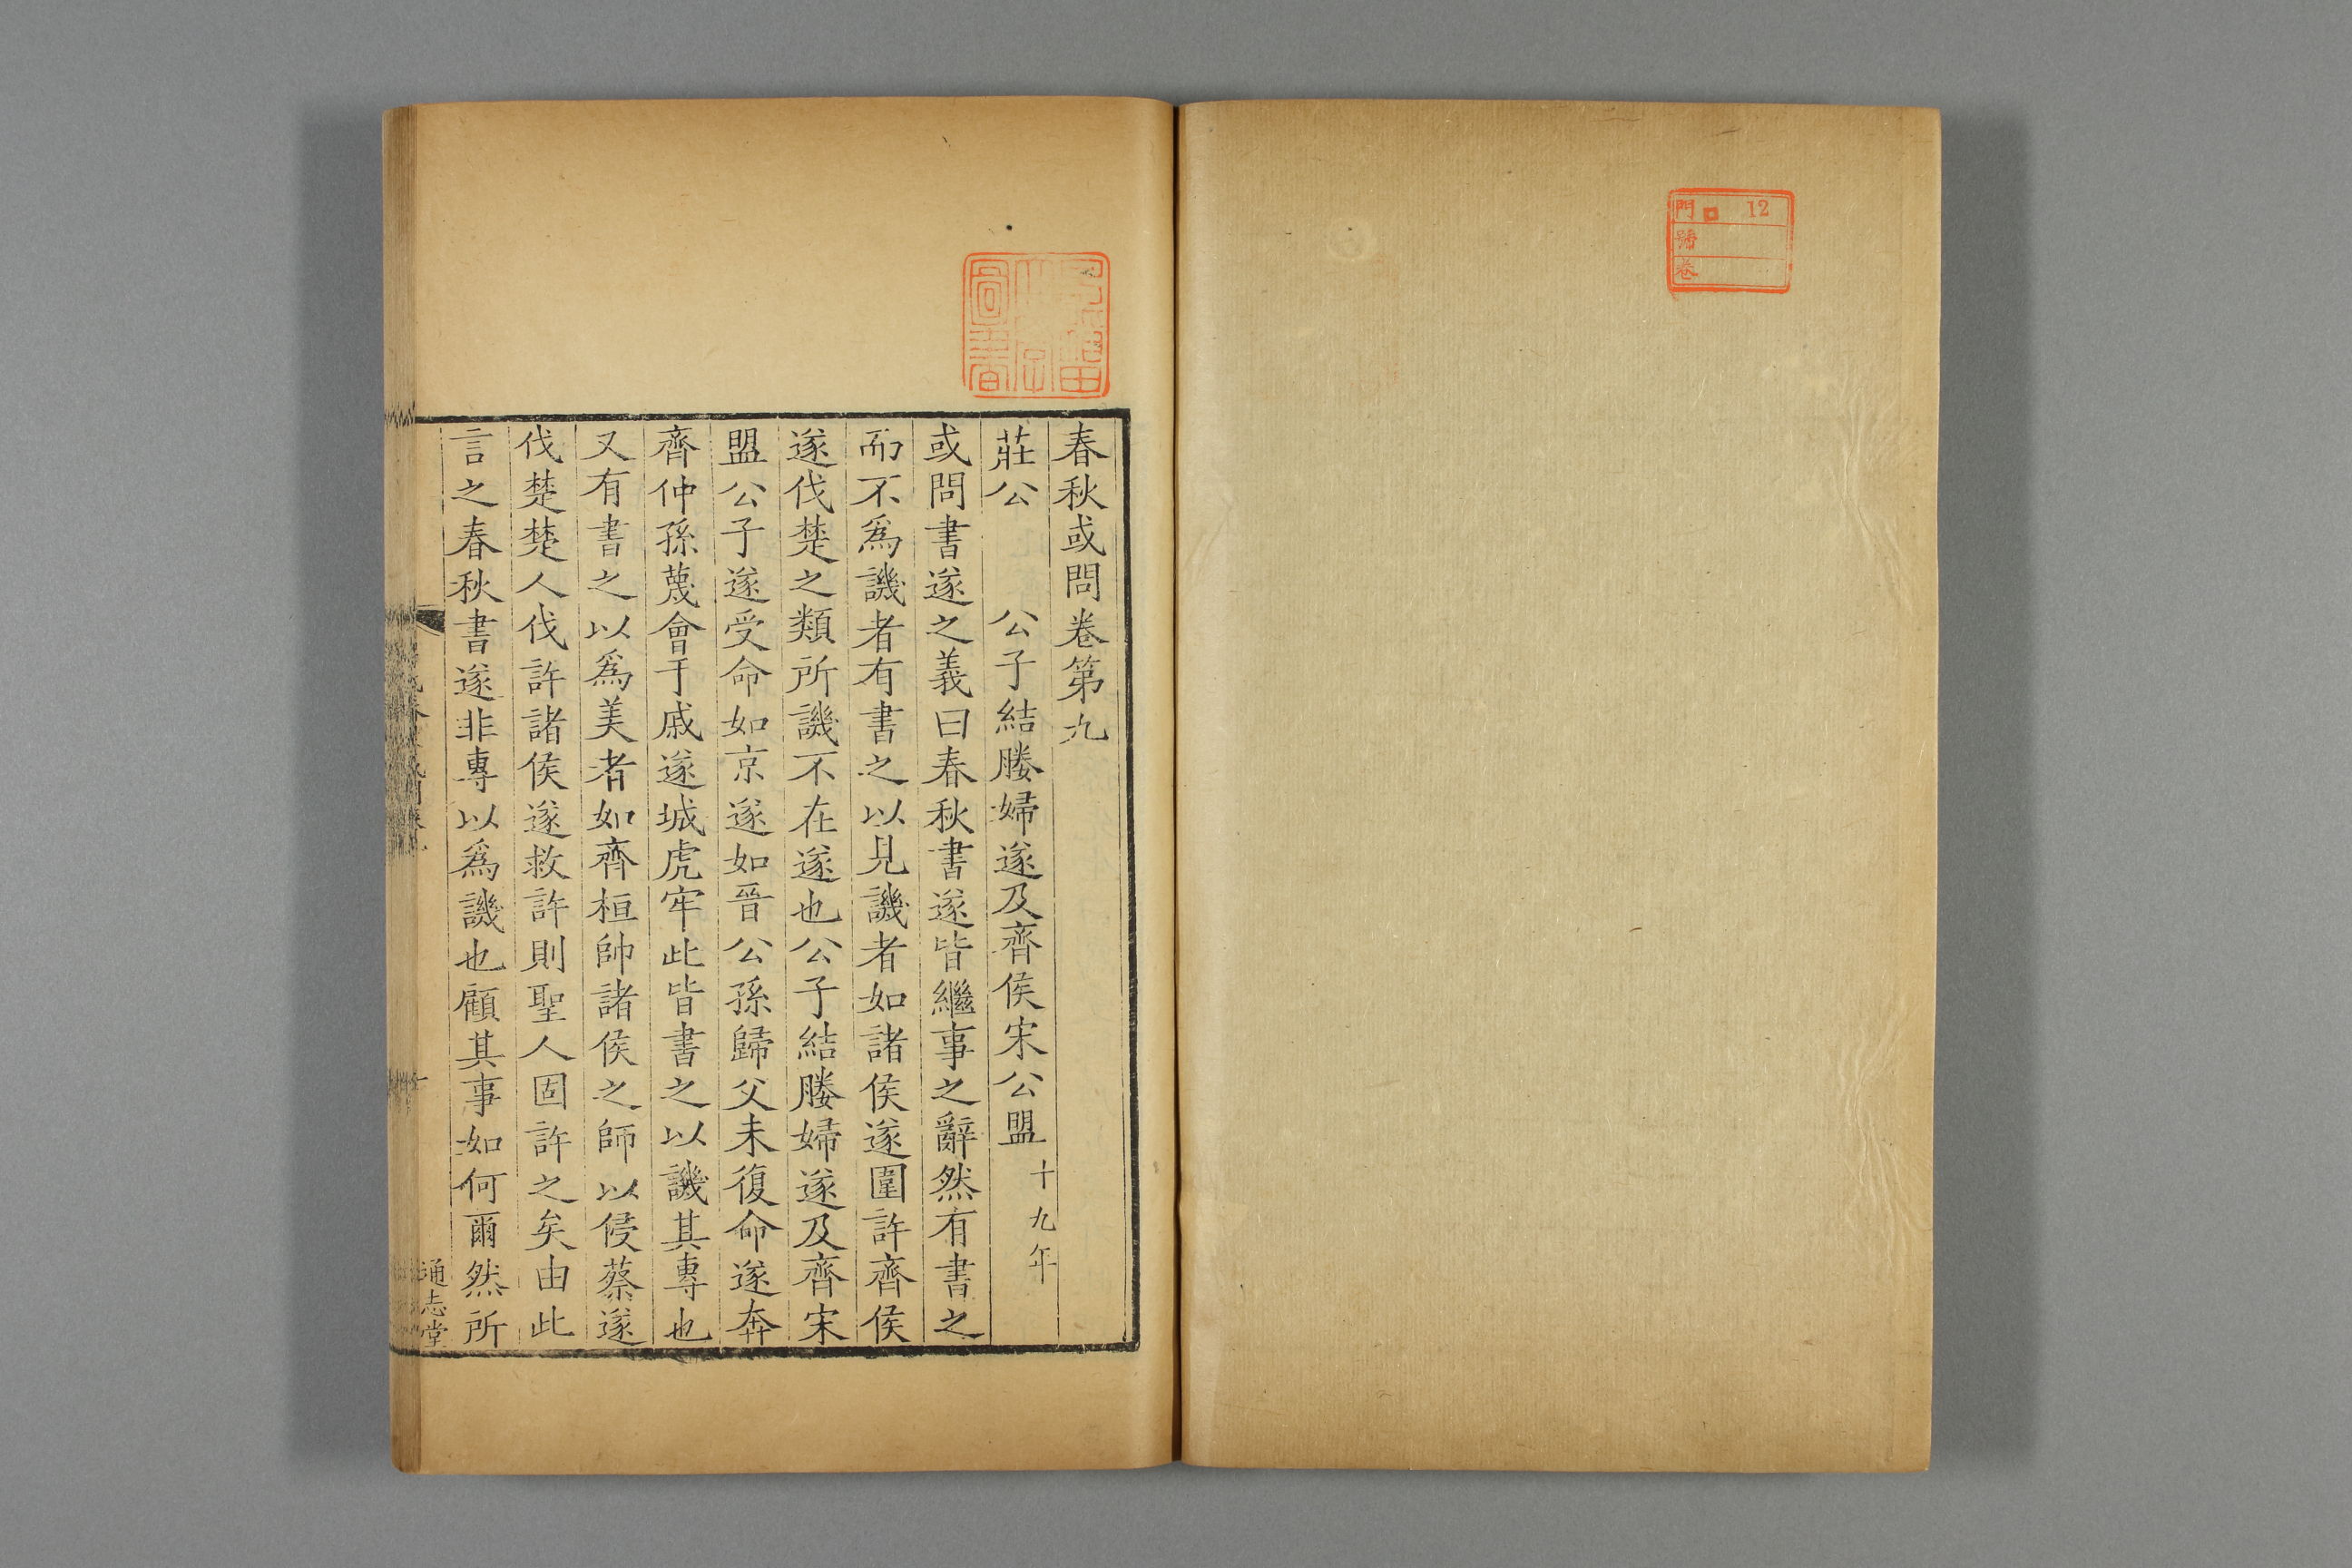 門 12
號
卷
春秋或問卷第九
莊公 公子結媵婦遂及齊侯宋公盟 十九年
或問書遂之義曰春秋書遂皆繼事之辭然有書之
而不爲譏者有書之以見譏者如諸侯遂圍許齊侯
遂伐楚之類所譏不在遂也公子結媵婦遂及齊宋
盟公子遂受命如京遂如晉公孫歸父未復命遂奔
齊仲孫蔑會于戚遂城虎牢此皆書之以譏其專也
又有書之以爲美者如齊桓帥諸侯之師以侵蔡遂
伐楚楚人伐許諸侯遂救許則聖人固許之矣由此
言之春秋書遂非專以爲譏也顧其事如何爾然所
通志堂